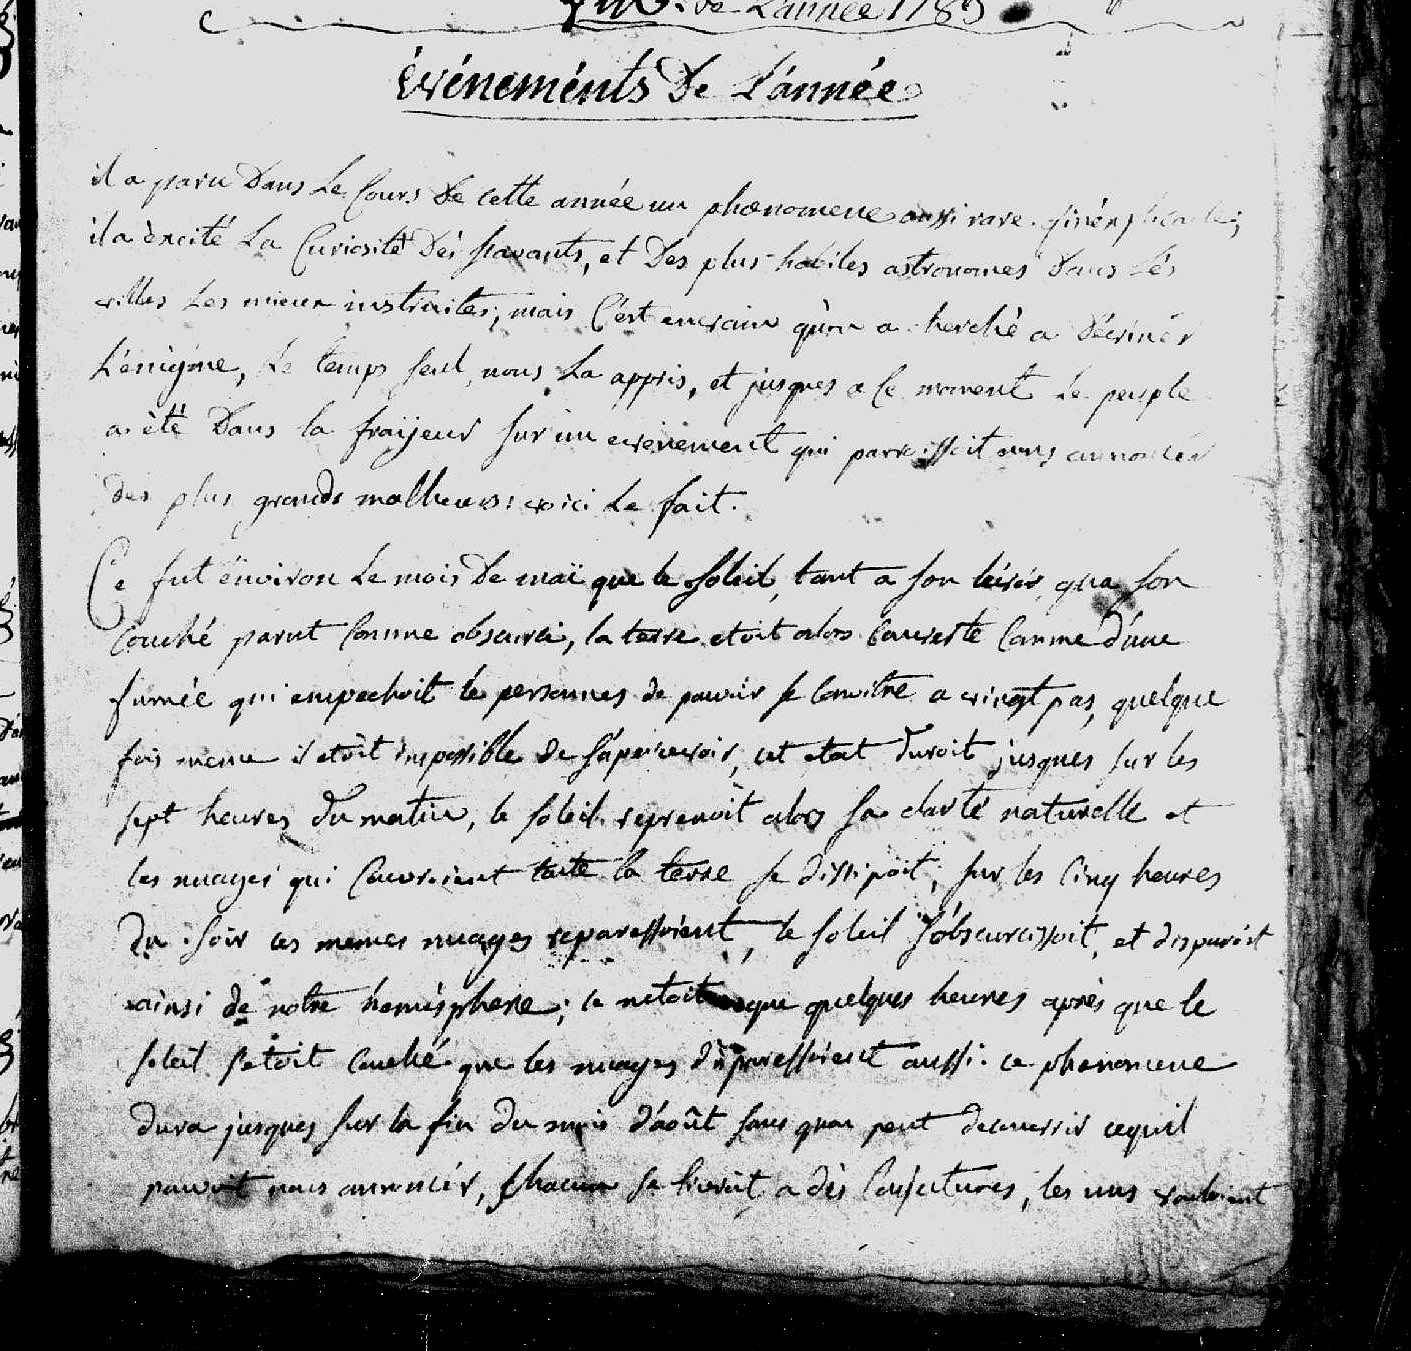 fin. de L'année 1783
événeménts De L'année
il a paru Dans Le Cours De cette année un phœnomene aussi rare qinéxplicable;
il a èxcité La Curiosité Dés scavants, et Des plus habiles astronomes Dans Lés
villes Les mieux instruites; mais C'ést envain qu'on a cherché a Déviner
L'énigme, Le temps seul nous La appris, et jusques a Ce moment Le peuple
a été Dans la fraÿeur sur un evenement qui parroissoit nous annoncér
des plus grands malheurs: voici Le fait.
Ce fut ënviron Le mois De maï que le soleil, tant a son levér, qua son
Couché parut Comme obscurci, la terre etoit alors Couverte Comme d'une
fumée qui empechoit les personnes de pouvoir se Conoitre a vingt pas, quelque
fois meme il etoit impossible de s'apercevoir, cet etat duroit jusques sur les
sept heures du matin, le soleil reprenoit alors sa clarté naturelle et
les nuages qui Couvroient toute la terre se dissipoit; sur les Cinq heures
du soir ces memes nuages reparessoient, le soleil s'obscurcissoit, et disparoit
ainsi de notre hemisphere; ce netoit que quelques heures aprés que le
soleil setoit Couché que les nuages disparessoient aussi. ce phenomene
dura jusques sur la fin du mois d'août sans quon peut decouvrir cequil
pouvoit nous annoncér, Chacun se livroit a dés Conjectures, les uns vouloient